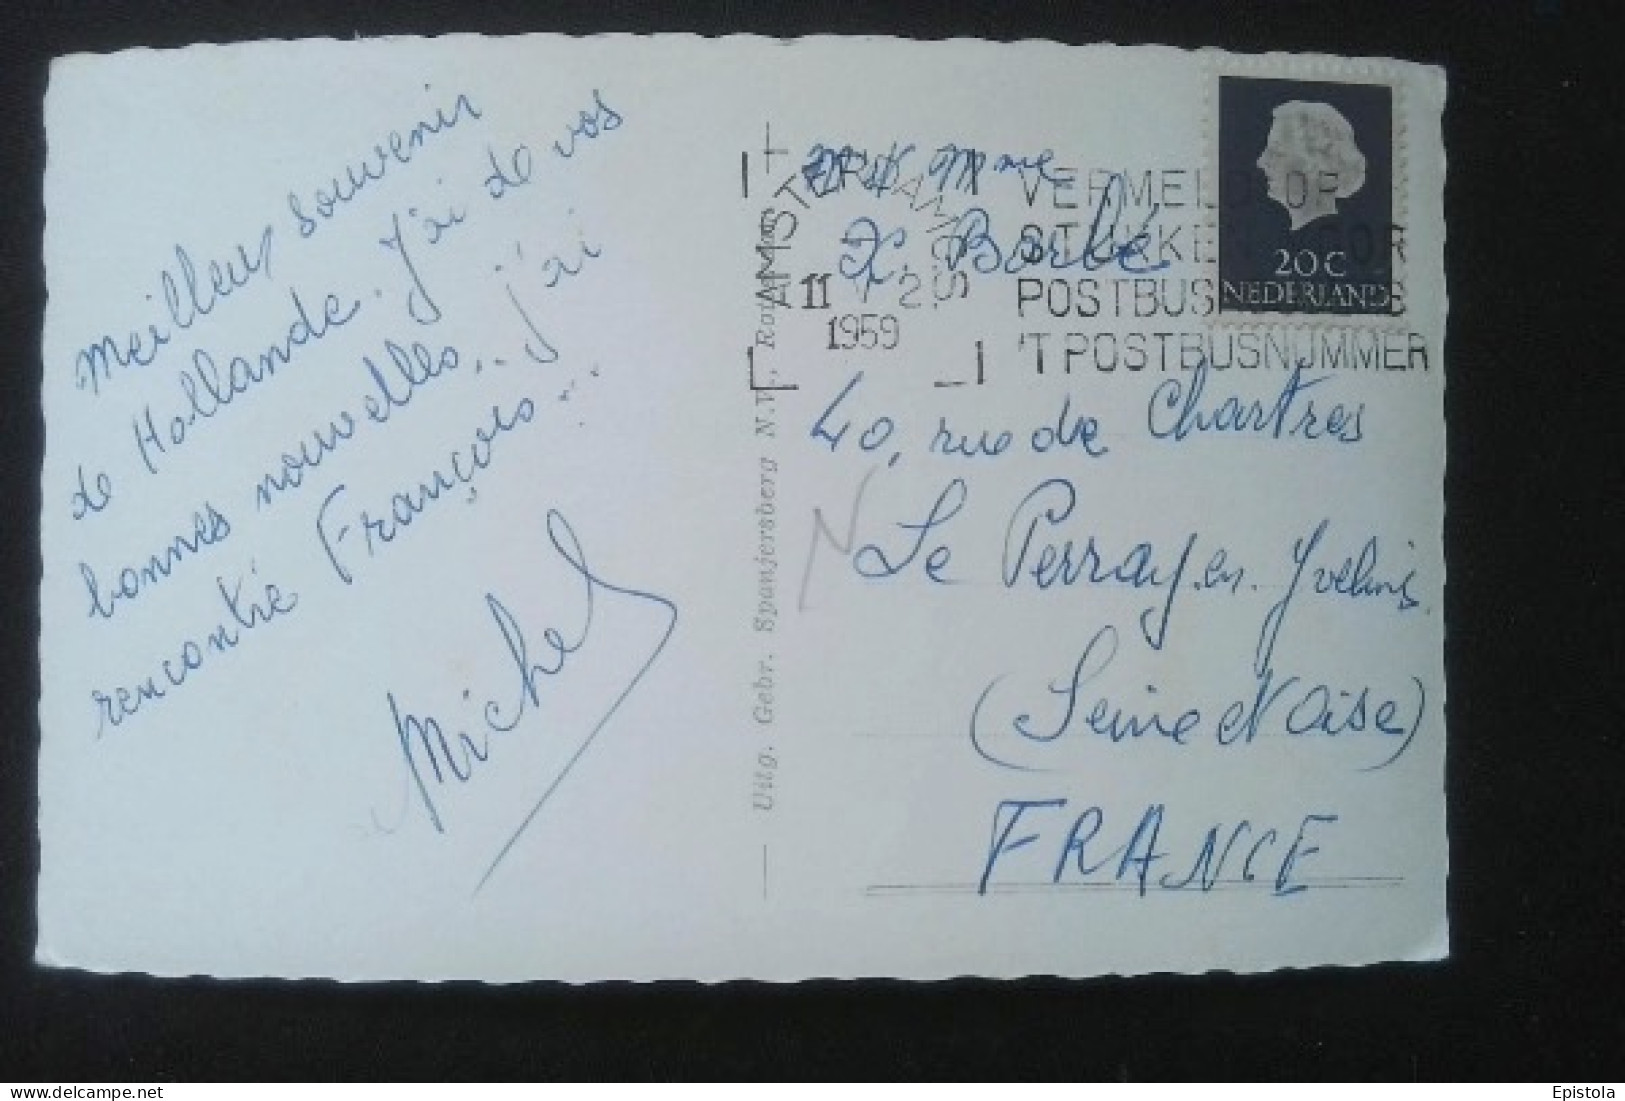 Meilleur souvenir
de Hollande. J'ai de vos
bonnes nouvelles... j'ai
rencontré François...
Michel
Uitg. Gebr. Spanjersberg N.V.,
AMSTERDAM
11 2
1959
VERMELD OP
STUKKEN VOOR
POSTBUSHOUDERS
'T POSTBUSNUMMER
20C
NEDERLAND
Mme
Barbé
40, rue de Chartres
Le Perray-en-Yvelines
(Seine et Oise)
FRANCE
Epistola